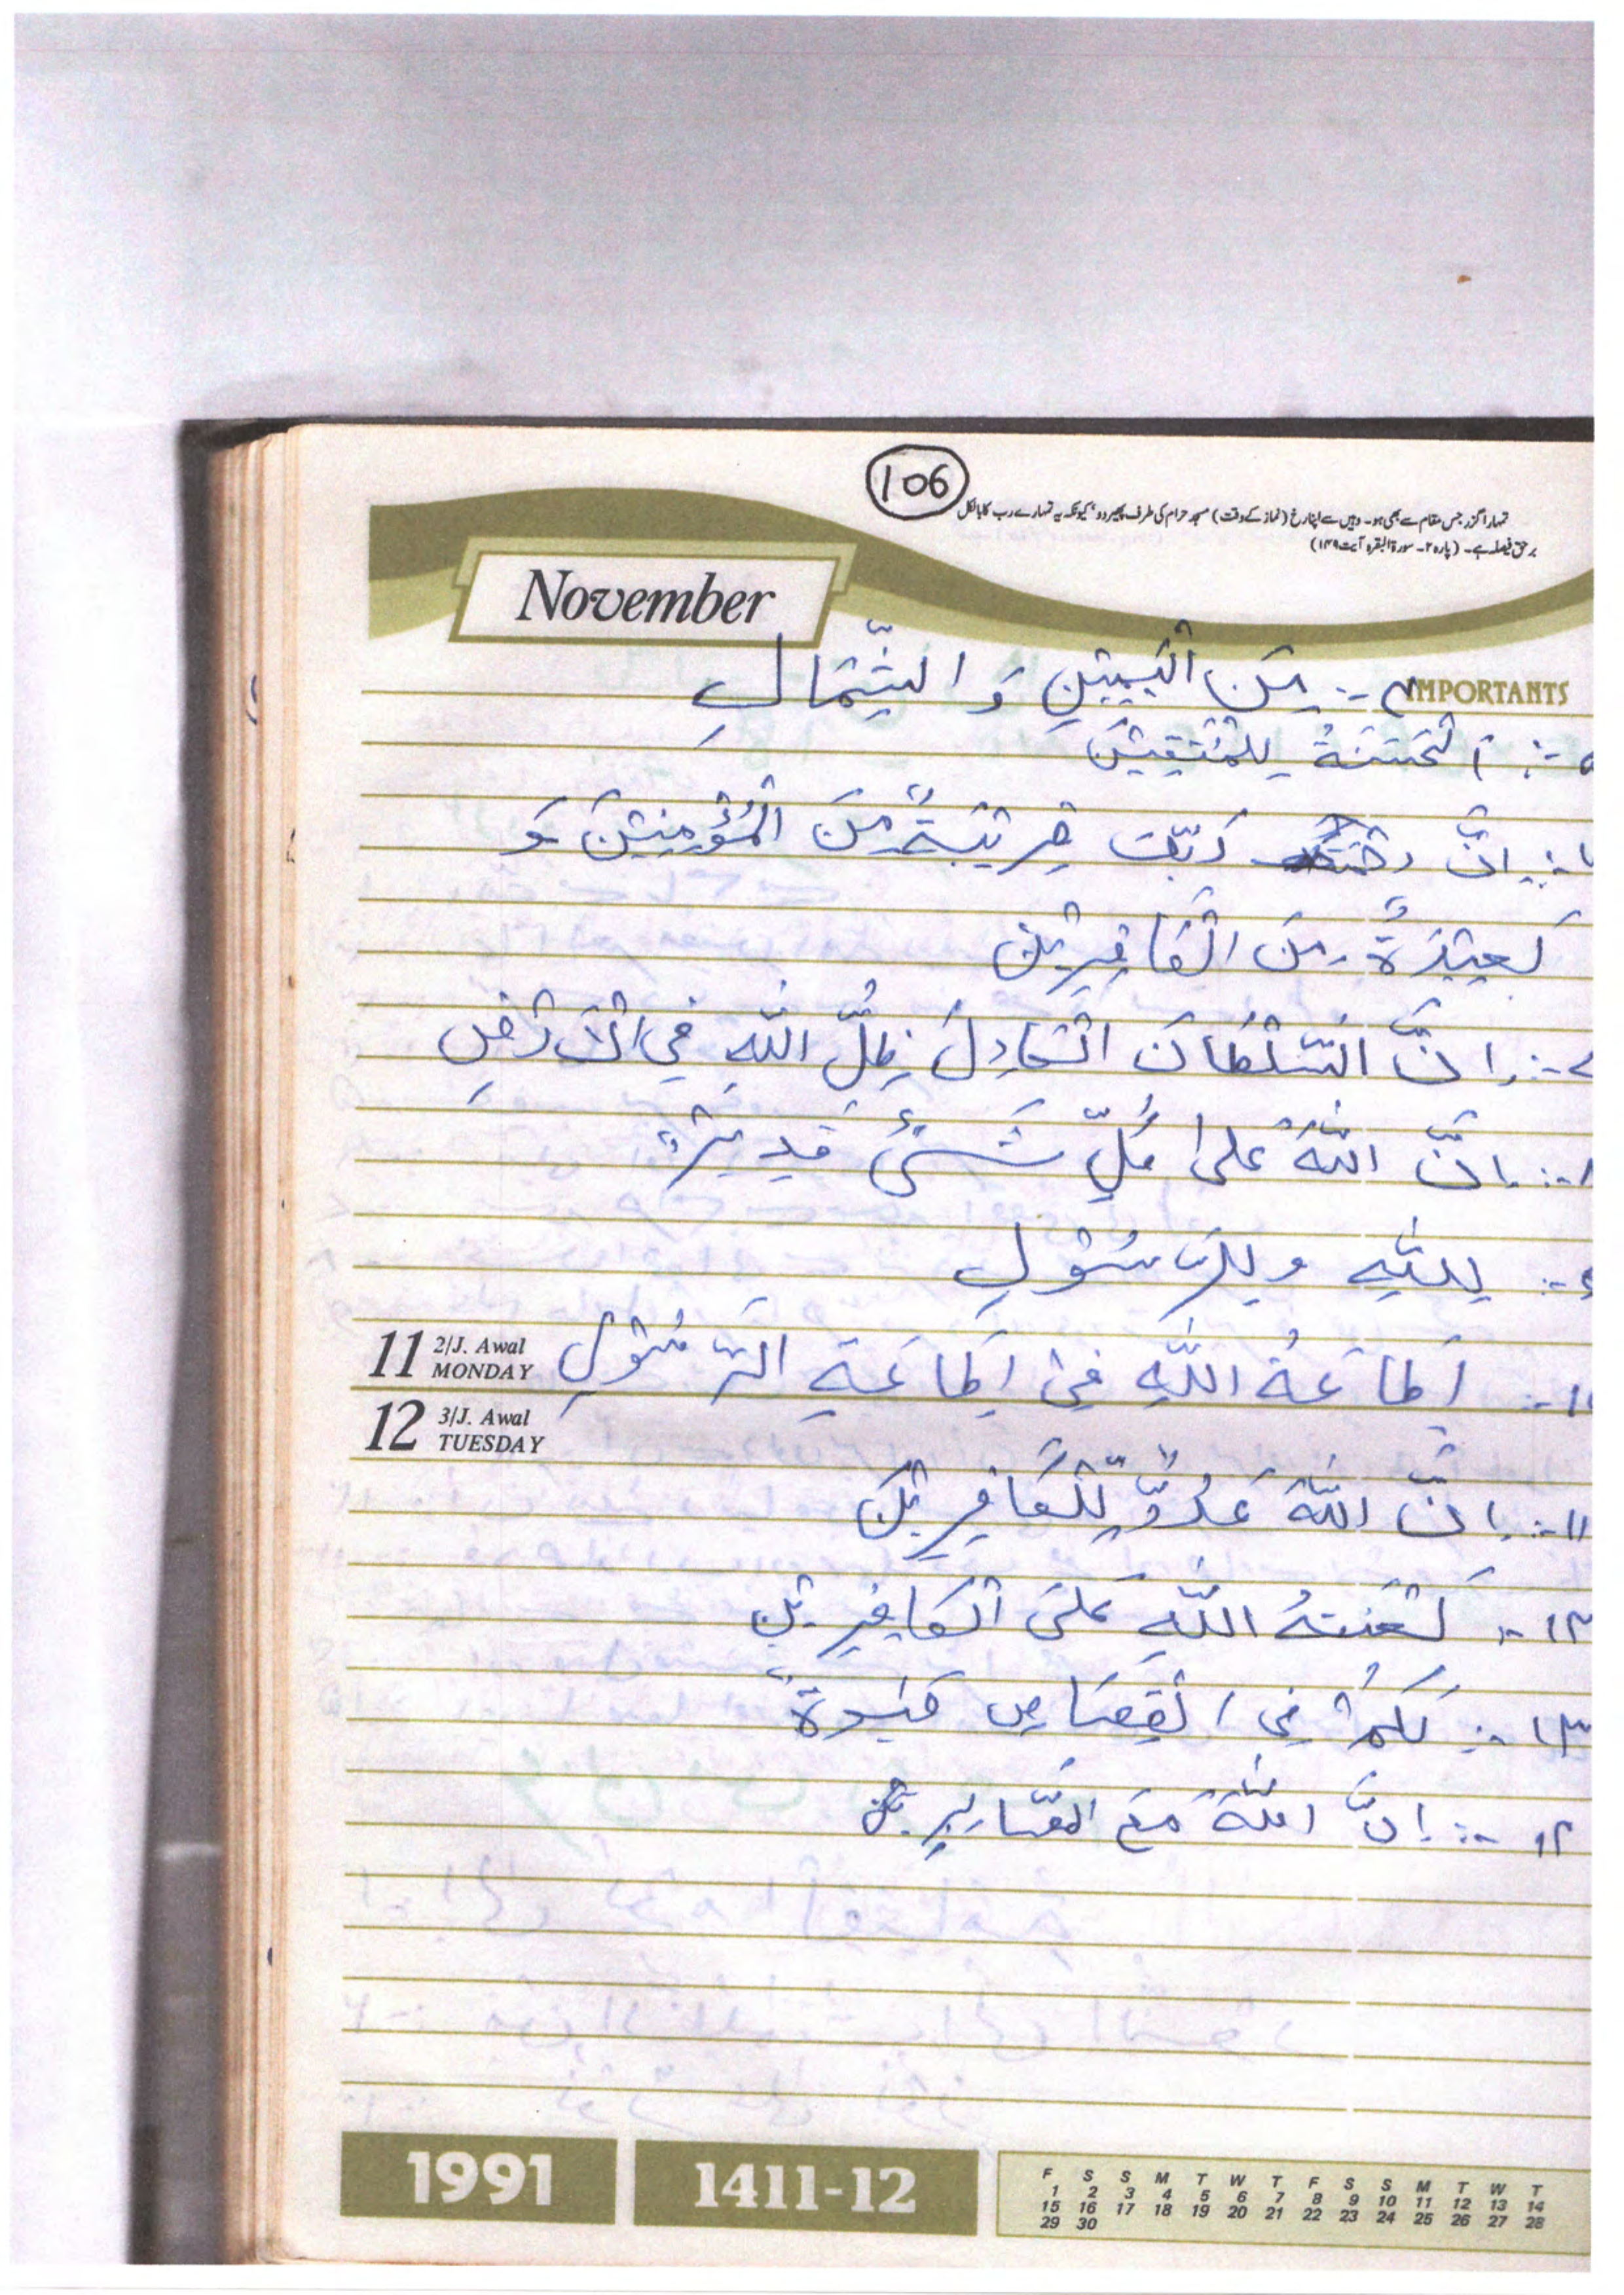 106
تمہارا گزر جس مقام سے بھی ہو۔ وہیں سے اپنا رخ (نماز کے وقت) مسجد حرام کی طرف پھیر دو' کیونکہ یہ تمہارے رب کا بالکل
برحق فیصلہ ہے۔ (پارہ ۲۔ سورۃ البقرہ آیت ۱۴۹)
November
IMPORTANTS
۴-: مِنَ الْيَمِيْنِ وَ الشِّمَالِ
اَلْجَنَّةُ لِلْمُتَّقِيْنَ
اِنَّ رَبَّكَ قَرِيْبَةٌ مِنَ الْمُؤْمِنِيْنَ وَ
بَعِيْدَةٌ مِنَ الْكَافِرِيْنَ
۷-: اِنَّ السُّلْطَانَ الْعَادِلَ ظِلُّ اللّٰهِ فِي الْاَرْضِ
۸-: اِنَّ اللّٰهَ عَلىٰ كُلِّ شَيْءٍ قَدِيْرٌ
۹-: لِلّٰهِ وَلِلرَّسُوْلِ
۱۰-: اِطَاعَةُ اللّٰهِ فِيْ اِطَاعَةِ الرَّسُوْلِ
11 2/J. Awal
MONDAY
12 3/J. Awal
TUESDAY
۱۱-: اِنَّ اللّٰهَ عَدُوٌّ لِّلْكَافِرِيْنَ
۱۲-: لَعْنَةُ اللّٰهِ عَلَى الْكَافِرِيْنَ
۱۳-: لَكُمْ فِي الْقِصَاصِ حَيٰوةٌ
۱۴-: اِنَّ اللّٰهَ مَعَ الصَّابِرِيْنَ
1991
1411-12
F S S M T W T F S S M T W T
1 2 3 4 5 6 7 8 9 10 11 12 13 14
15 16 17 18 19 20 21 22 23 24 25 26 27 28
29 30